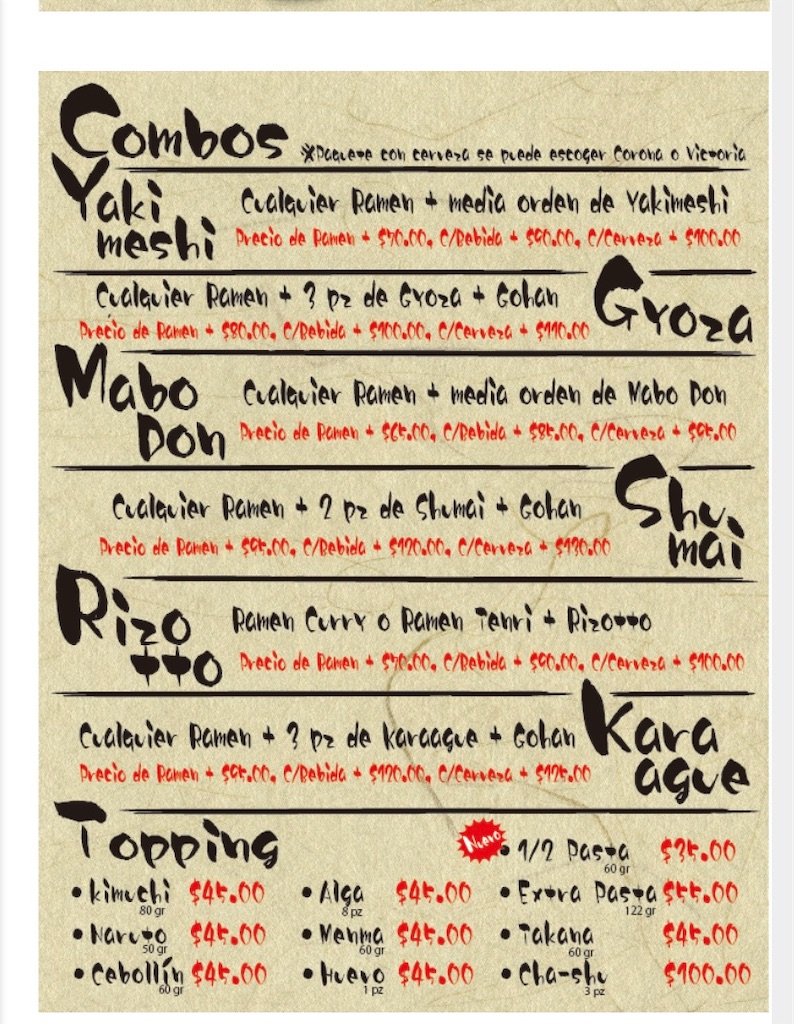 Combos ※Paquete con cerveza se puede escoger Corona o Victoria
Yaki
meshi
Cualquier Ramen + media orden de Yakimeshi
Precio de Ramen + $70.00, C/Bebida + $90.00, C/Cerveza + $100.00
Gyoza
Cualquier Ramen + 3 pz de Gyoza + Gohan
Precio de Ramen + $80.00, C/Bebida + $100.00, C/Cerveza + $110.00
Mabo
Don
Cualquier Ramen + media orden de Mabo Don
Precio de Ramen + $65.00, C/Bebida + $85.00, C/Cerveza + $95.00
Shu
mai
Cualquier Ramen + 2 pz de Shumai + Gohan
Precio de Ramen + $95.00, C/Bebida + $120.00, C/Cerveza + $130.00
Rizo
tto
Ramen Curry o Ramen Tenri + Rizotto
Precio de Ramen + $70.00, C/Bebida + $90.00, C/Cerveza + $100.00
Kara
ague
Cualquier Ramen + 3 pz de Karaague + Gohan
Precio de Ramen + $95.00, C/Bebida + $120.00, C/Cerveza + $125.00
Topping
• Kimuchi $45.00
80 gr
• Naruto $45.00
50 gr
• Cebollín $45.00
60 gr
• Alga $45.00
8 pz
• Menma $45.00
60 gr
• Huevo $45.00
1 pz
Nuevo • 1/2 Pasta $35.00
60 gr
• Extra Pasta $55.00
122 gr
• Takana $45.00
60 gr
• Cha-shu $100.00
3 pz